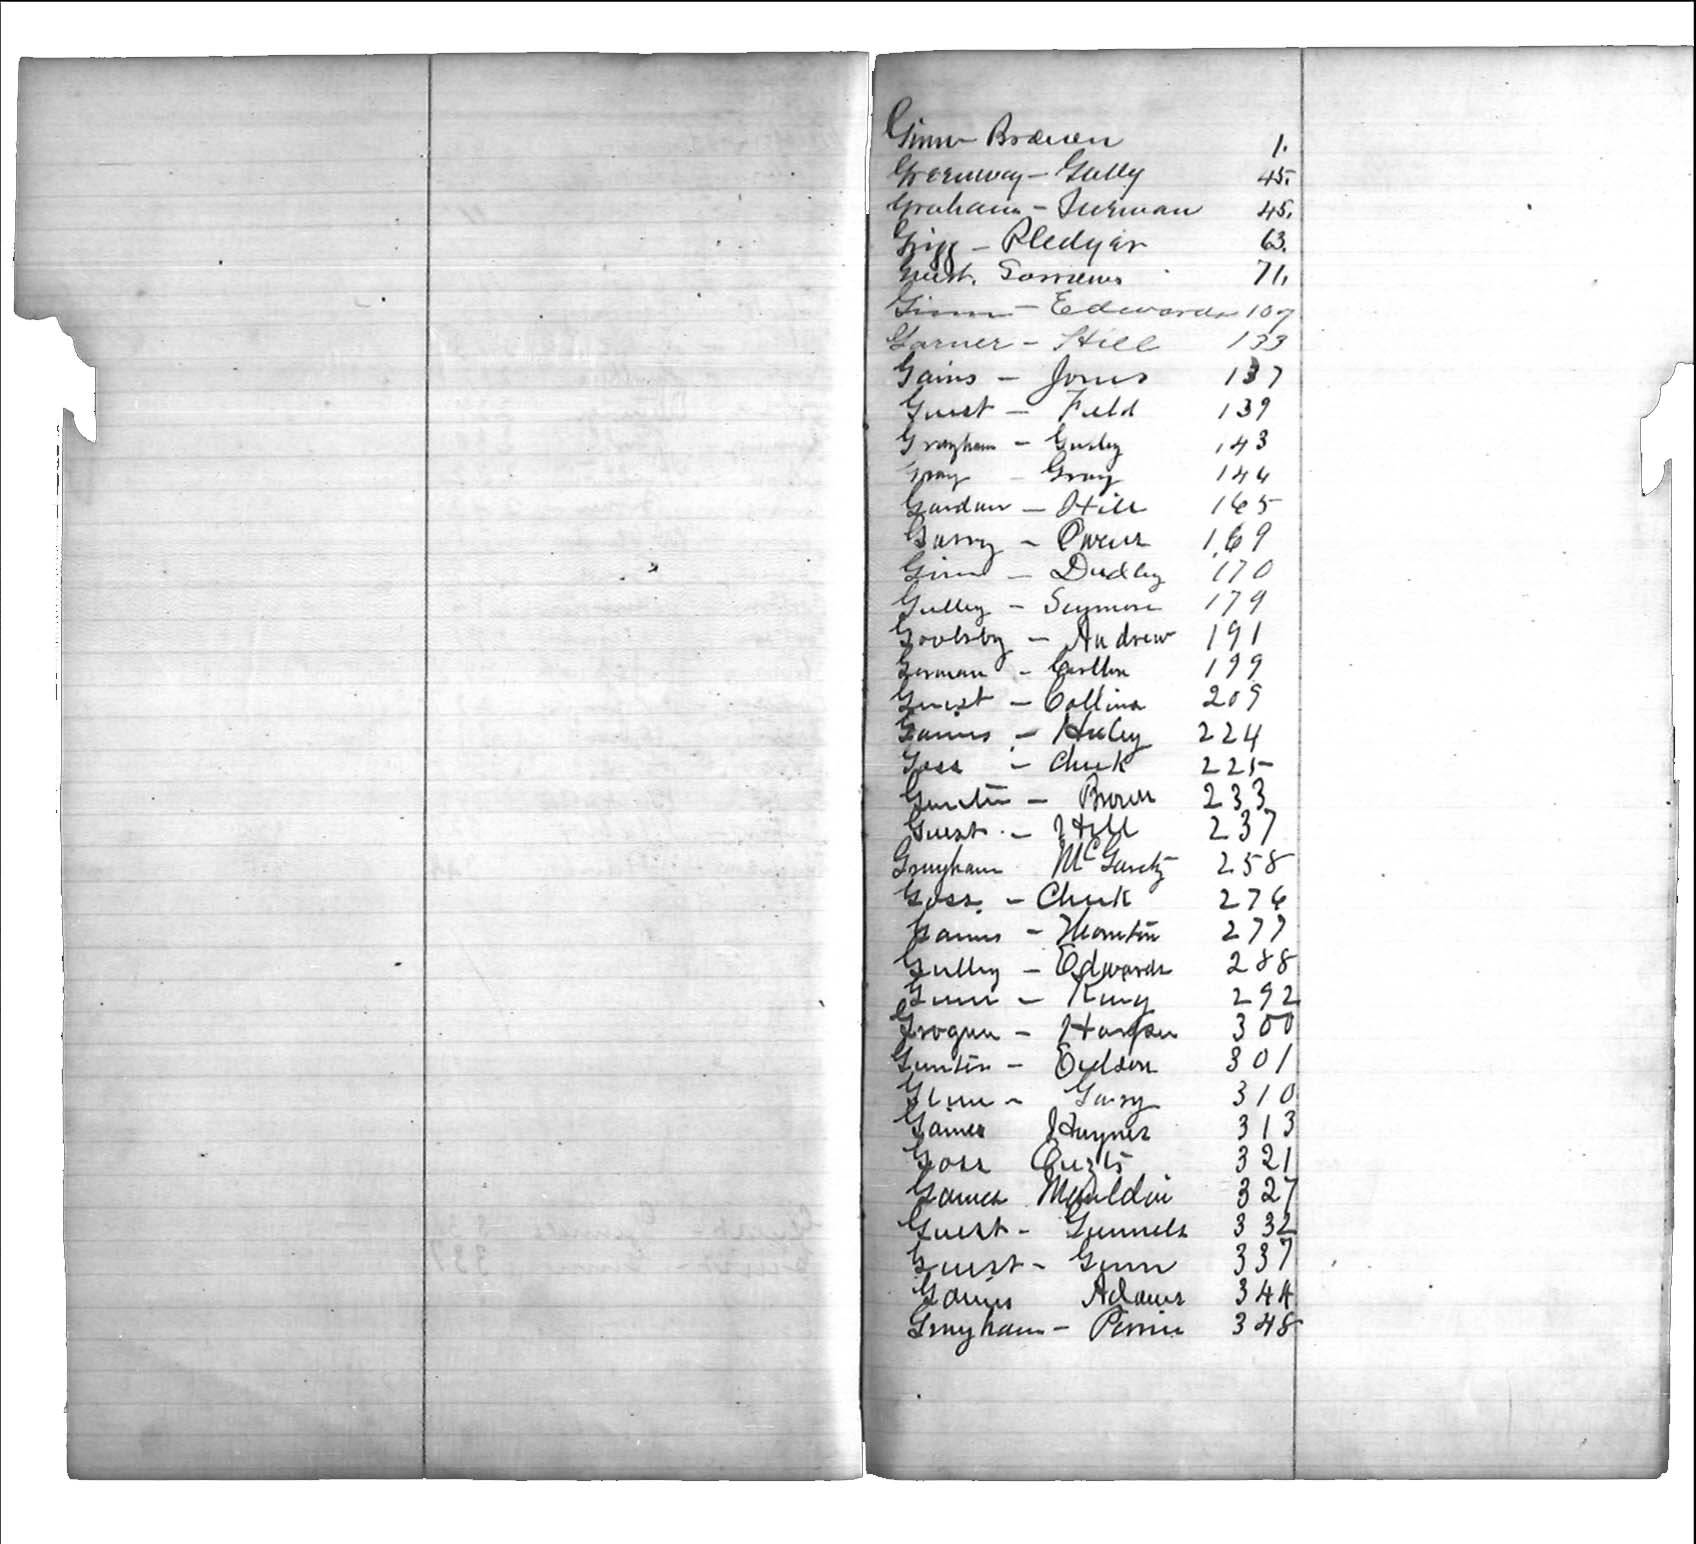 Ginn - Brawen 1.
Greenway - Gully 45.
Graham - Turman 45.
Grigg - Pledger 63.
Guest. Sorrows 71.
Ginn - Edwards 107
Garner - Hill 133
Gains - Jones 137
Guest - Field 139
Grayham - Gurley 143
Gray - Gray 144
Gordan - Hill 165
Garry - Owens 169
Ginn - Dudley 170
Gulley - Seymore 179
Goolsby - Andrew 191
German - Carlton 199
Guest - Collins 209
Gaines - Huley 224
Goss - Cheek 225
Gunter - Brown 233
Guest - Hill 237
Grayham McGarety 258
Goss - Cheek 276
Gaines - Thornton 277
Gulley - Edwards 288
Gunn - King 292
Grogan - Harper 300
Gunter - Eidson 301
Glenn - Gary 310
Gaines Haynes 313
Goss 321
Gaines Mauldin 327
Guest - Gunnels 332
Guest - Ginn 337
Gaines Adams 344
Grayham - Perrin 348